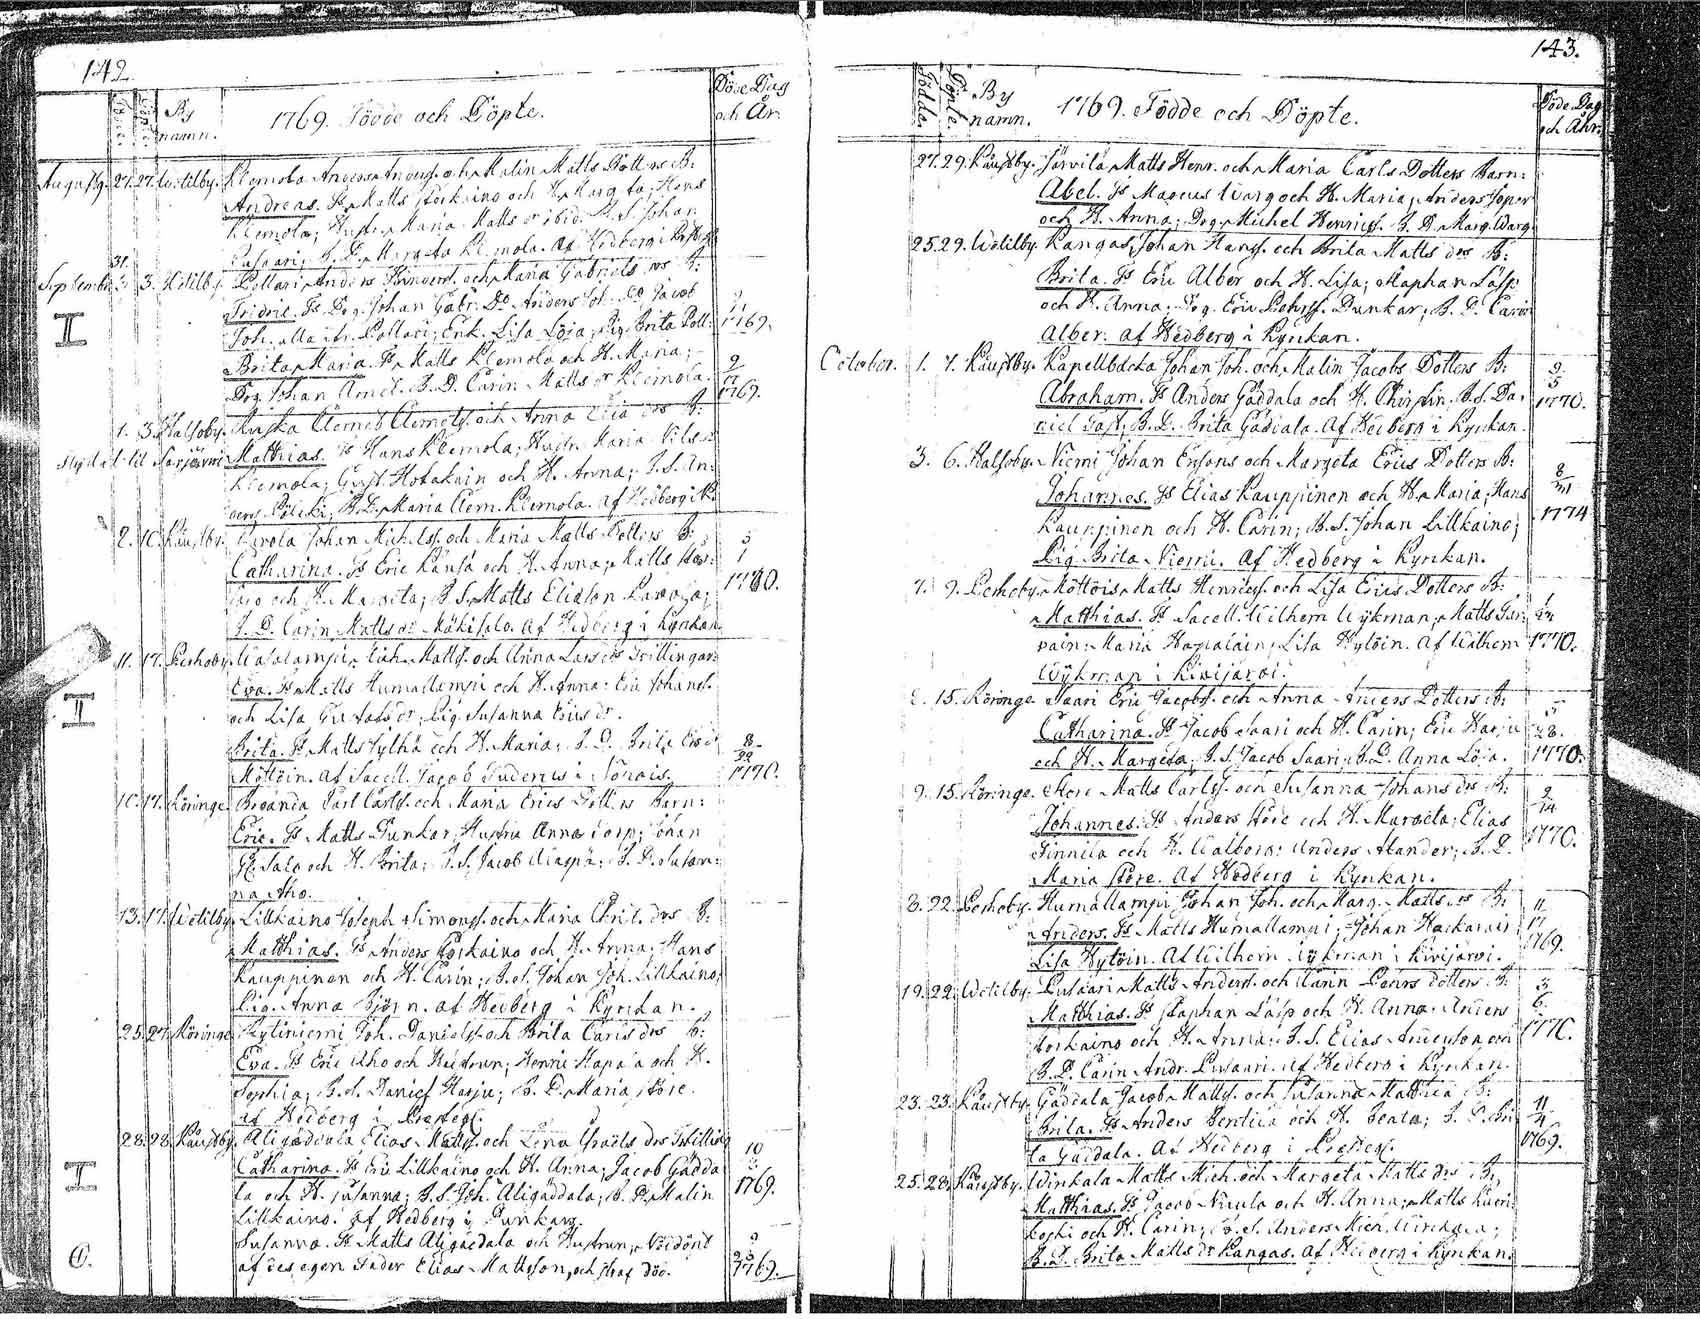 142
Födde. Döpte. By namn. 1769. Födde och Döpte. Döde Dag och År.
August. 27. 27. Wetilby. Klemola Anders Anderss. och Malin Matts Dotters B:
Andreas. Fs Matts Torkaino och H. Margeta; Hans
Klemola; Hustr. Maria Matts dr ibid. B.S. Johan
Klemola. Af Hedberg i
September 31. 3. Wetilby. Pollari Anders Hinderss. och Maria Gabriels drs B:
Fridric. Fs Drg. Johan Gabr. Do Anders Joh. Do Jacob
Joh. alla ifr. Pollari; Enk. Lisa Löja; Pig. Brita Poll: 1769.
Brita Maria. Fs Matts Klemola och H. Maria;
Drg. Johan B. D. Carin Matts dr Klemola. 1769.
1. 3. Halsoby. Clemet Clemetss. och Anna Elia drs B:
Matthias. Fs Hans Klemola; Hustr. Maria Nils dr
Klemola; Gust. Hotakain och H. Anna;
B.D. Maria Clem. Klemola. Af Hedberg i
2. 10. Käustby. Johan Michelss. och Maria Matts Dotters B: 5
Catharina. Fs Eric Känsä och H. Anna; Matts 1
och H. Margeta; B.S. Matts Eliasson 1770.
B. D. Carin Matts dr Mäkisalo. Af Hedberg i Kyrckan
11. 17. Perhoby. Matts. och Anna Lars drs Tvillingar.
Eva. Fs Matts Humallampi och H. Anna: Eric Johanss.
och Lisa Gustafs dr; Pig. Susanna Erics dr.
Brita. Fs Matts Sylhä och H. Maria; B. D. Brita Erics dr 8
Möttöin. Af Sacell. Jacob Tuderus i 1770.
10. 17. Röringe. Broända Carl Carlss. och Maria Erics Dotters Barn:
Eric. Fs Matts Dunkar; Hustru Anna Torp; Johan
Salo och H. Brita; B.S. Jacob B. D. Susan:
na Aho.
13. 17. Wetilby. Lillkaino Joseph Simonss. och Maria Christ. drs B:
Matthias. Fs Anders Torkaino och H. Anna; Hans
Kauppinen och H. Carin; B.S. Johan Joh. Lillkaino;
Pig. Anna Björn. af Hedberg i Kyrckan.
25. 27. Röringe. Kytiniemi Joh. Danielss. och Brita Caris drs B:
Eva. Fs Eric Aho och Hustrun; Henric Hapa a och H.
Sophia; B. S. Daniel Harju; B. D. Maria Store.
af Hedberg i Prostegl.
28. 28. Käustby. Aligäddala Elias Matss. och Lena Israels drs Tvilling 10
Catharina. Fs Eric Lillkaino och H. Anna; Jacob Gädda
la och H. Susanna; B. S. Joh. Aligäddala; B. D. Malin 1769.
Lillkaino. af Hedberg i Dunkars.
Susanna. Fs Matts Aligäddala och Hustrun; Nöddöpt
af des egen Fader Elias Mattsson, och straf död. 1769.
143.
Födde. Döpte. By namn. 1769. Födde och Döpte. Döde Dag och Åhr.
27. 29. Käustby. Järvilä Matts Henr. och Maria Carls Dotters Barn:
Abel. Fs Magnus Warg och H. Maria; Anders Soper
och H. Anna; Drg. Michel Henricss. B. D. Marg. Warg
25. 29. Wetilby Kangas, Johan Hanss. och Brita Matts drs B:
Brita. Fs Eric Alber och H. Lisa; Staphan Läsp
och H. Anna; Drg. Eric Pehrss. Dunkar; B. D. Carin
Alber. af Hedberg i Kyrckan.
October. 1. 7. Käustby. Kapellbacka Johan Joh. och Malin Jacobs Dotters B: 9
Abraham. Fs Anders Gäddala och H. Christin; B.S. Da; 5
niel Fast; B. D. Brita Gäddala. Af Hedberg i Kyrckan. 1770.
3. 6. Halsoby. Niemi Johan Ersons och Margeta Erics Dotters B: 8
Johannes. Fs Elias Kauppinen och H. Maria; Hans
Kauppinen och H. Carin; B.S. Johan Lillkaino; 1774
Pig. Brita Niemi. Af Hedberg i Kyrckan.
7. 9. Perhoby. Möttöis Matts Henricss. och Lisa Erics Dotters B:
Matthias. Fs Sacell. Wilhem Wykman, Matts
Maria Hapalain; Lisa Hytöin. Af Wilhem 1770.
Wykman i Kivijärvi.
15. Röringe. Saari Eric Jacobss. och Anna Anders Dotters B: 5
Catharina. Fs Jacob Saari och H. Carin; Eric Harju 28.
och H. Margeta; B. S. Jacob Saari; B. D. Anna Löja. 1770.
9. 15. Röringe. Store Matts Carlss. och Susanna Johans drs B: 2
Johannes. Fs Anders Store och H. Margeta; Elias 14
Finnilä och H. Walborg: Anders Alander; B. D. 1770.
Maria Store. Af Hedberg i Kyrckan.
8. 22. Perhoby. Humallampi Johan Joh. och Marg. Matts drs B: 11
Anders. Fs Matts Humallampi; Johan Hackarais 17
Lisa Hytöin. Af Wilhem Wykman i Kivijärvi. 1769.
19. 22. Wetilby. Pulsaari Matts Anderss. och Carin Pehrs dotters B: 3
Matthias. Fs Staphan Läsp och H. Anna: Anders 6
Torkaino och H. Anna; B. S. Elias Andersson 1770.
B. D. Carin Andr. Pulsaari. af Hedberg i Kyrckan.
23. 23. Käustby. Gäddala Jacob Matss. och Susanna Matthia B: 11
Brita. Fs Anders Pentilä och H. Beata; B. D. Bri 4
ta Gäddala. Af Hedberg i Prostegl. 1769.
25. 28. Käustby. Winkala Matts Mich. och Margeta Matts drs B:
Matthias. Fs Jacob Nicula och H. Anna; Matts
koski och H. Carin; B. S. Anders Mich. Winkala;
B. D. Brita Matts dr Kangas. Af Hedberg i Kyrckan.